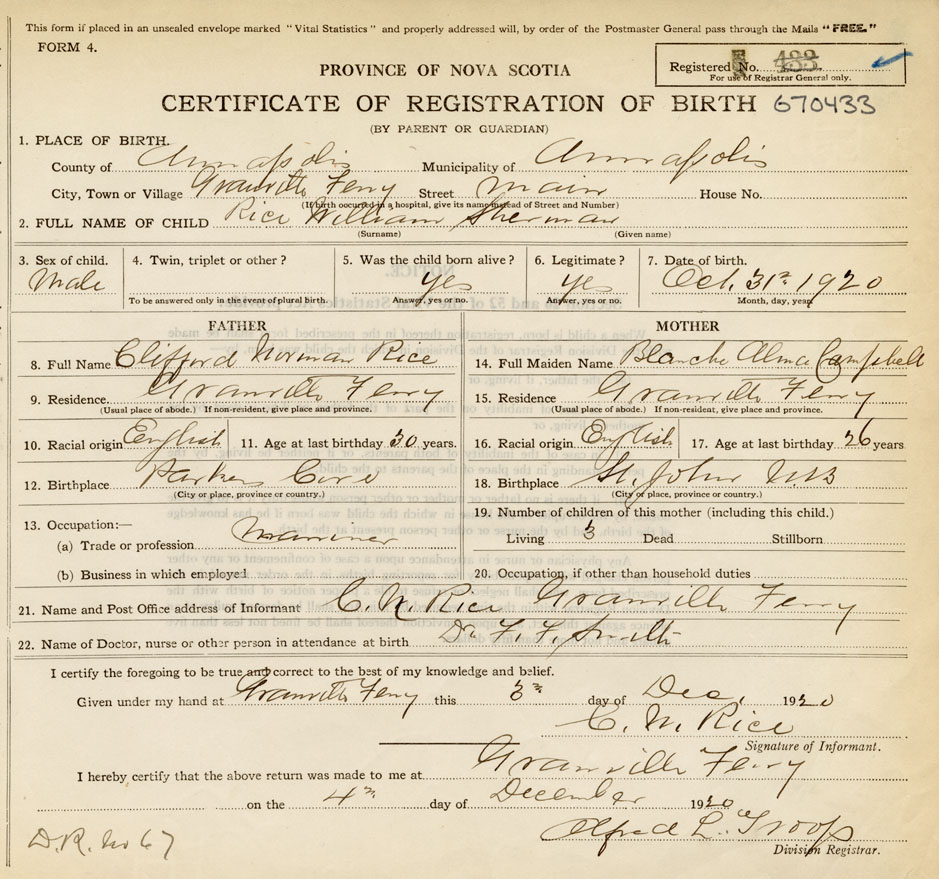 This form if placed in an unsealed envelope marked "Vital Statistics" and properly addressed will, by order of the Postmaster General pass through the Mails "FREE."
FORM 4.
Registered No. 433
For use of Registrar General only.
PROVINCE OF NOVA SCOTIA
CERTIFICATE OF REGISTRATION OF BIRTH 670433
(BY PARENT OR GUARDIAN)
1. PLACE OF BIRTH.
County of Annapolis Municipality of Annapolis
City, Town or Village Granville Ferry Street Main House No.
(If birth occurred in a hospital, give its name instead of Street and Number)
2. FULL NAME OF CHILD Rice William Sherman
(Surname) (Given name)
3. Sex of child. 4. Twin, triplet or other? 5. Was the child born alive? 6. Legitimate? 7. Date of birth.
Male yes yes Oct. 31st 1920
To be answered only in the event of plural birth. Answer, yes or no. Answer, yes or no. Month, day, year
FATHER MOTHER
8. Full Name Clifford Norman Rice 14. Full Maiden Name Blanche Alma Campbell
9. Residence Granville Ferry 15. Residence Granville Ferry
(Usual place of abode.) If non-resident, give place and province. (Usual place of abode.) If non-resident, give place and province.
10. Racial origin English 11. Age at last birthday 30 years. 16. Racial origin English 17. Age at last birthday 26 years
12. Birthplace Parkers Cove 18. Birthplace St. John N.B
(City or place, province or country.) (City or place, province or country.)
13. Occupation:— 19. Number of children of this mother (including this child.)
(a) Trade or profession Mariner Living 3 Dead Stillborn
(b) Business in which employed 20. Occupation, if other than household duties
21. Name and Post Office address of Informant C. N. Rice Granville Ferry
22. Name of Doctor, nurse or other person in attendance at birth Dr. F. F. Smith
I certify the foregoing to be true and correct to the best of my knowledge and belief.
Given under my hand at Granville Ferry this 3rd day of Dec. 1920
C. N. Rice
Signature of Informant.
I hereby certify that the above return was made to me at Granville Ferry
on the 4th day of December 1920
Alfred L. Troop
Division Registrar.
D.R. No 67